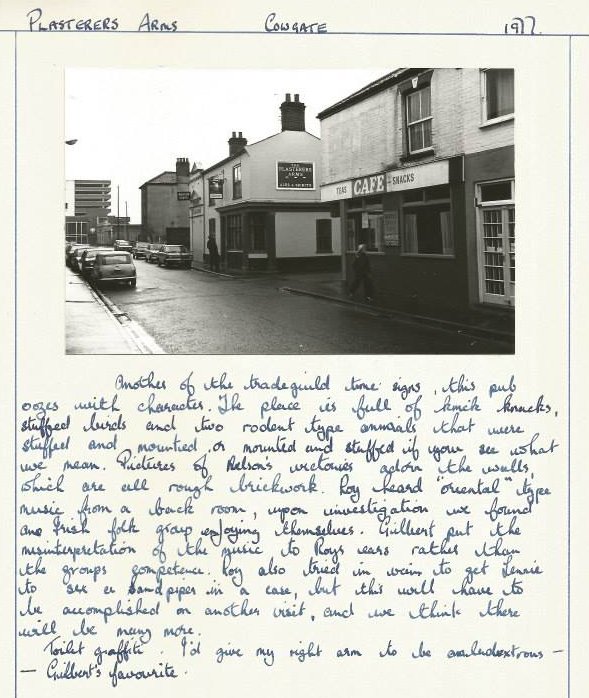 PLASTERERS ARMS COWGATE 1977.
THE
PLASTERERS
ARMS
ALES & SPIRITS
TEAS CAFE SNACKS
Another of the tradeguild time signs, this pub
oozes with character. The place is full of knick knacks,
stuffed birds and two rodent type animals that were
stuffed and mounted, or mounted and stuffed if you see what
we mean. Pictures of Nelson's victories adorn the walls,
which are all rough brickwork. Roy heard "oriental" type
music from a back room, upon investigation we found
an Irish folk group enjoying themselves. Gilbert put the
misinterpretation of the music to Roys ears rather than
the groups competence. Roy also tried in vain to get Lennie
to see a sandpiper in a case, but this will have to
be accomplished on another visit, and we think there
will be many more.
Toilet graffiti. I'd give my right arm to be ambidextrous —
— Gilbert's favourite.